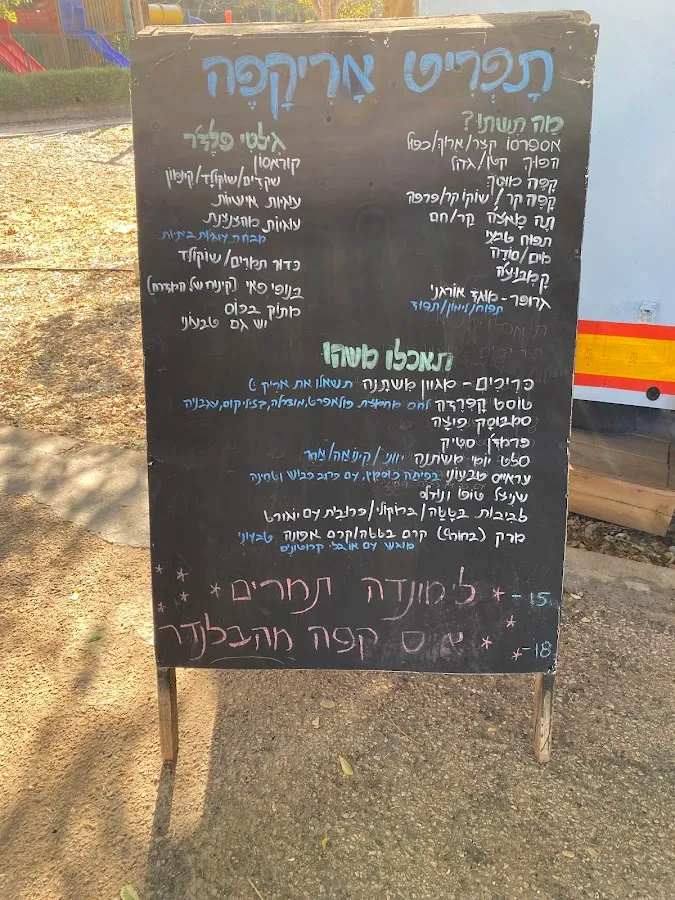 תפריט אריקפה
מה תשתו?
אספרסו קצר/ארוך/כפול
הפוך קטן/גדול
קפה מוסך
קפה קר/שוקו קר/פרפה
תה מאצ'ה קר/חם
תפוח טבעי
מים/סודה
קמבוצ'ה
גרופר - מוגז אורגני
תפוח/לימון/תפוז
גילטי פלז'ר
קוראסון
שקדים/שוקולד/קינמון
עוגיות אישיות
עוגיות מהצנצנת
מבחר עוגיות ביתיות
כדור תמרים/שוקולד
בנופי פאי (קינוח של המזרח)
מתוק בכוס
יש גם טבעוני
תאכלו משהו
כריכים - מגוון משתנה תשאלו את אריק :)
טוסט קפרזה לחם מחמצת פולאפרט, מוצרלה, בזיליקום, עגבניה
סמבוסק פיצה
פרמזן סטיק
סלט יומי משתנה יווני/קינואה/אחר
עראייס טבעוני בפיתה כוסמין, עם כרוב כבוש וטחינה
שניצל טופו ונודלס
לביבות בטטה/ברוקולי/כרובית עם יוגורט
מרק (בחורף) קרם בטטה/קרם אפונה טבעוני
מוגש עם אובלי קרוטונים
לימונדה תמרים - 15
אייס קפה מהבלנדר - 18